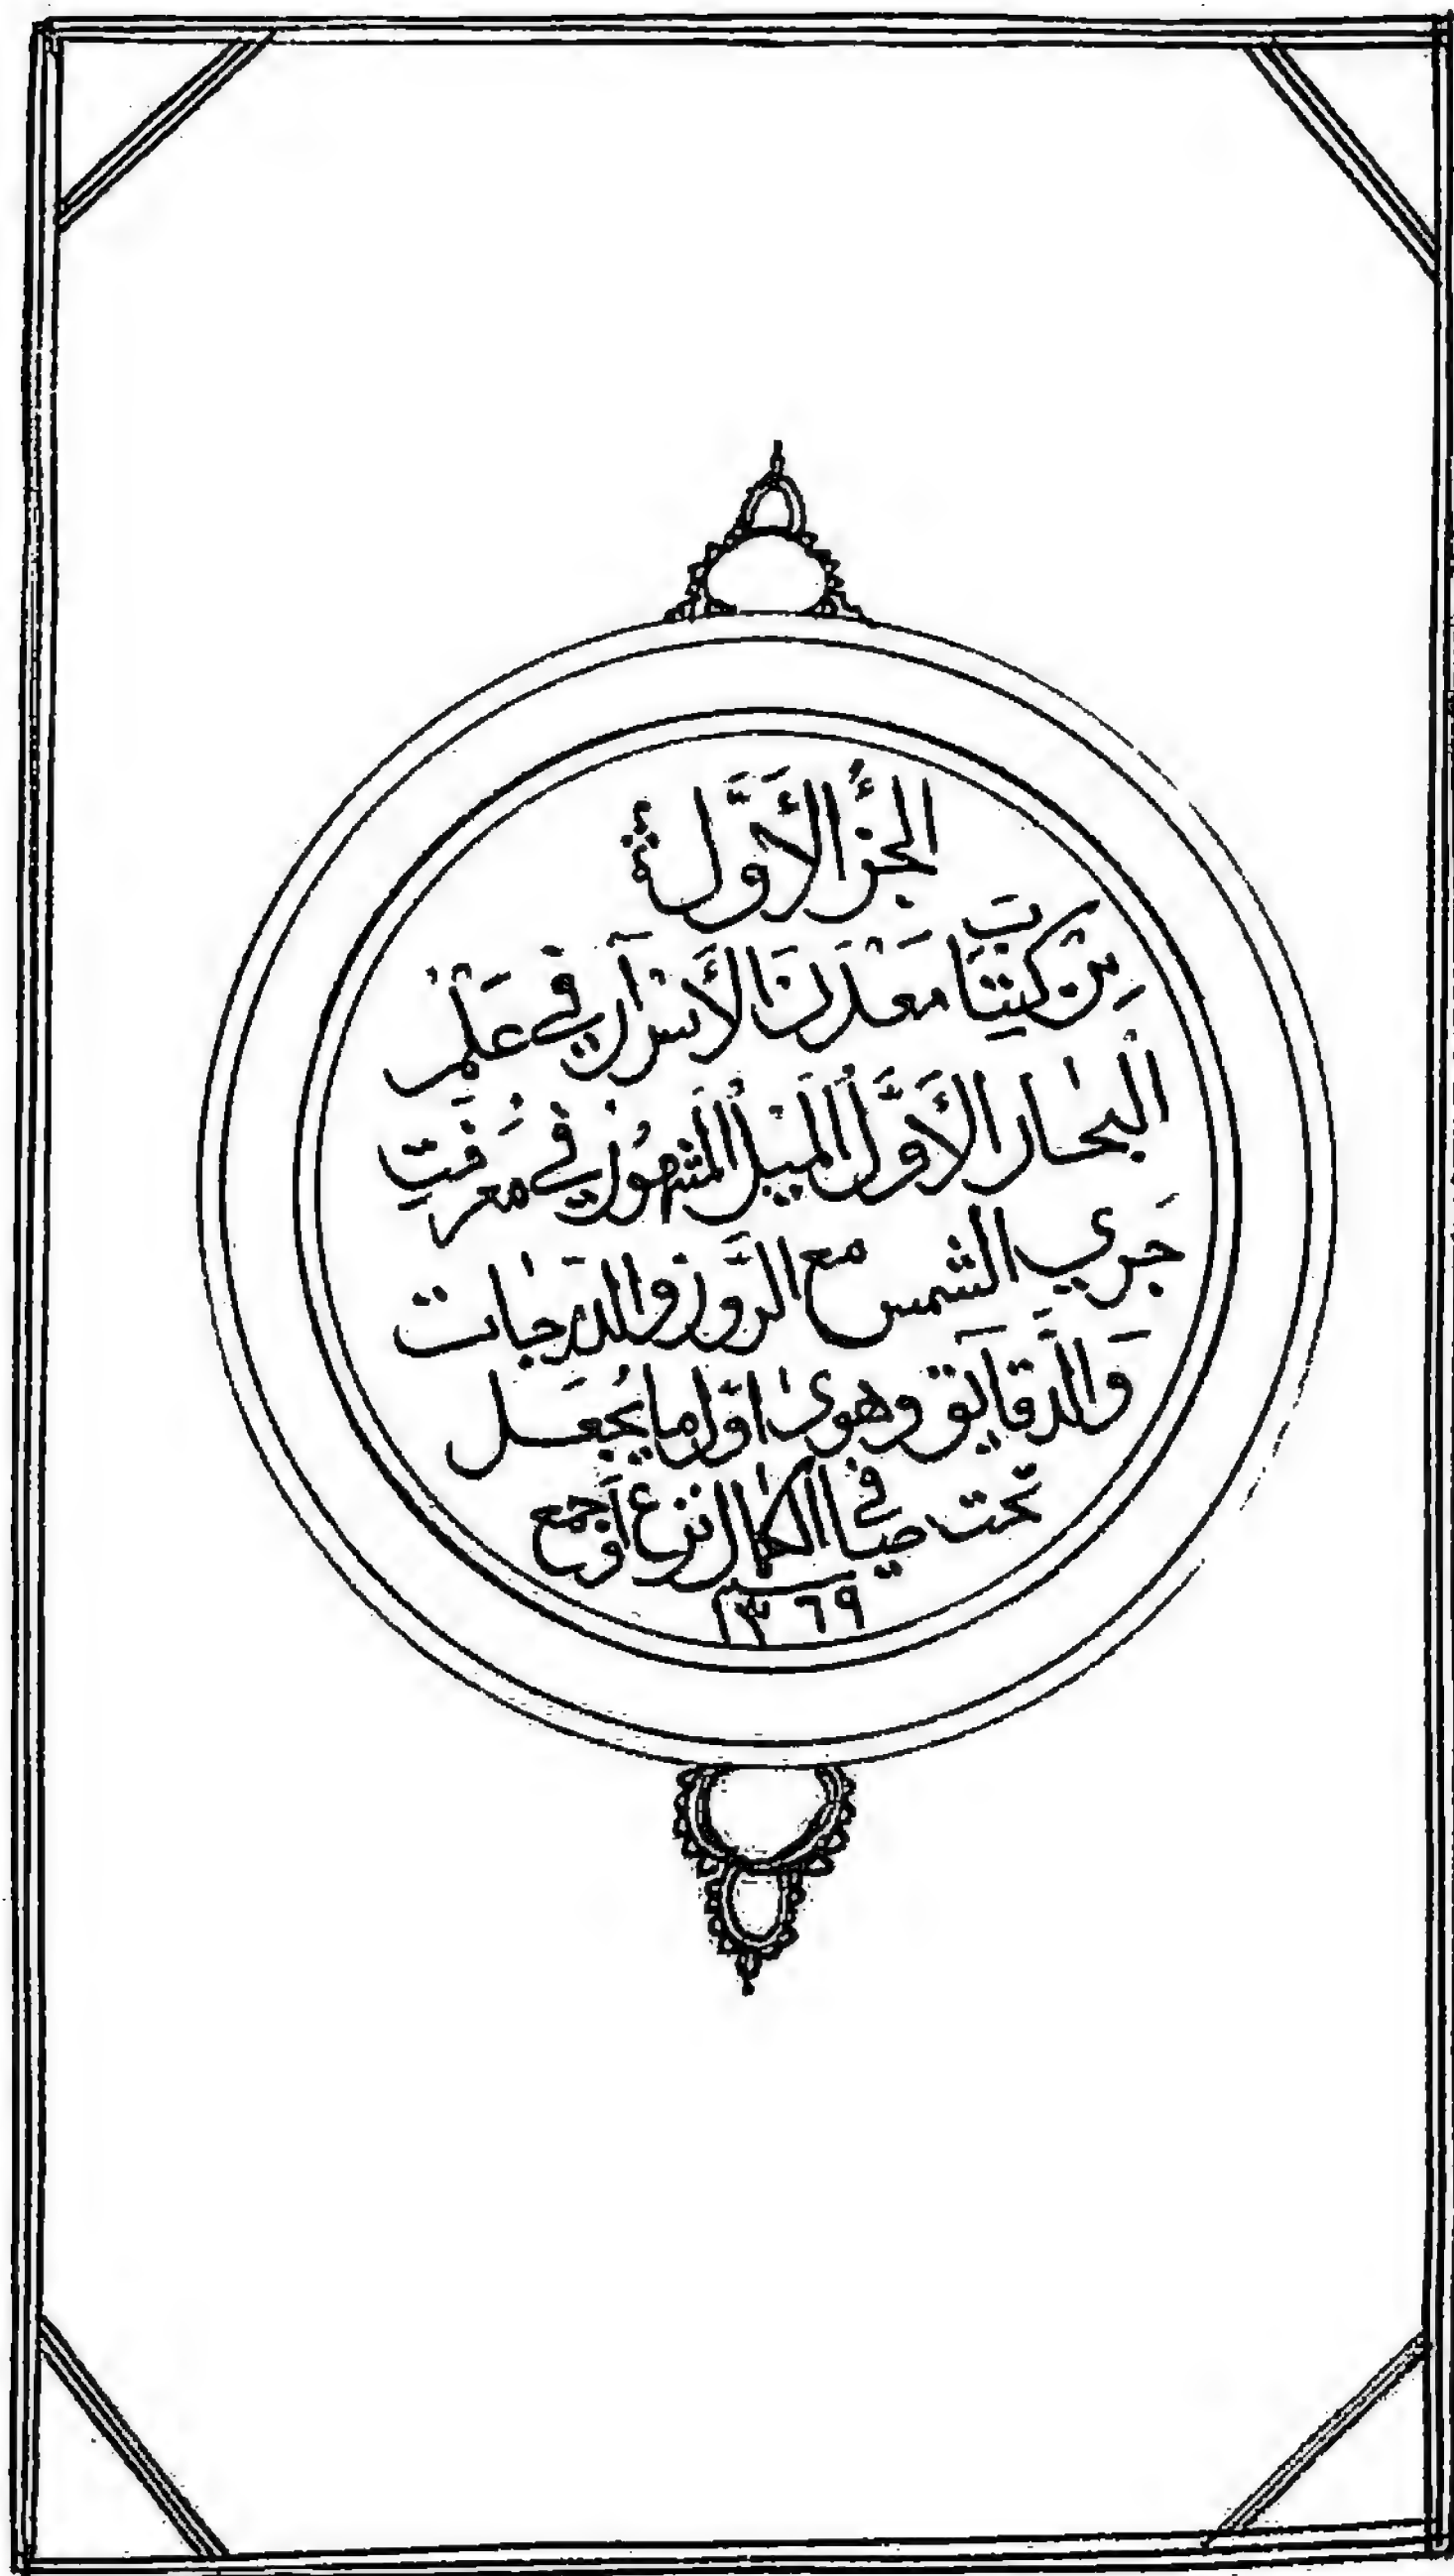 الجُزءُ الأَوَّل
مِن كِتَابَ مَعْدَنَ الأَسْرَار في عَلْمْ
البحار الأَوَّل الميل المشهُور في معرفتِ
جَري الشمس مع الرَّوز والدرجات
وَالدَّقَايق وهوى اوّل ما يُجعَل
تحت في الكمال نزع أوجمع
١٣٦٩